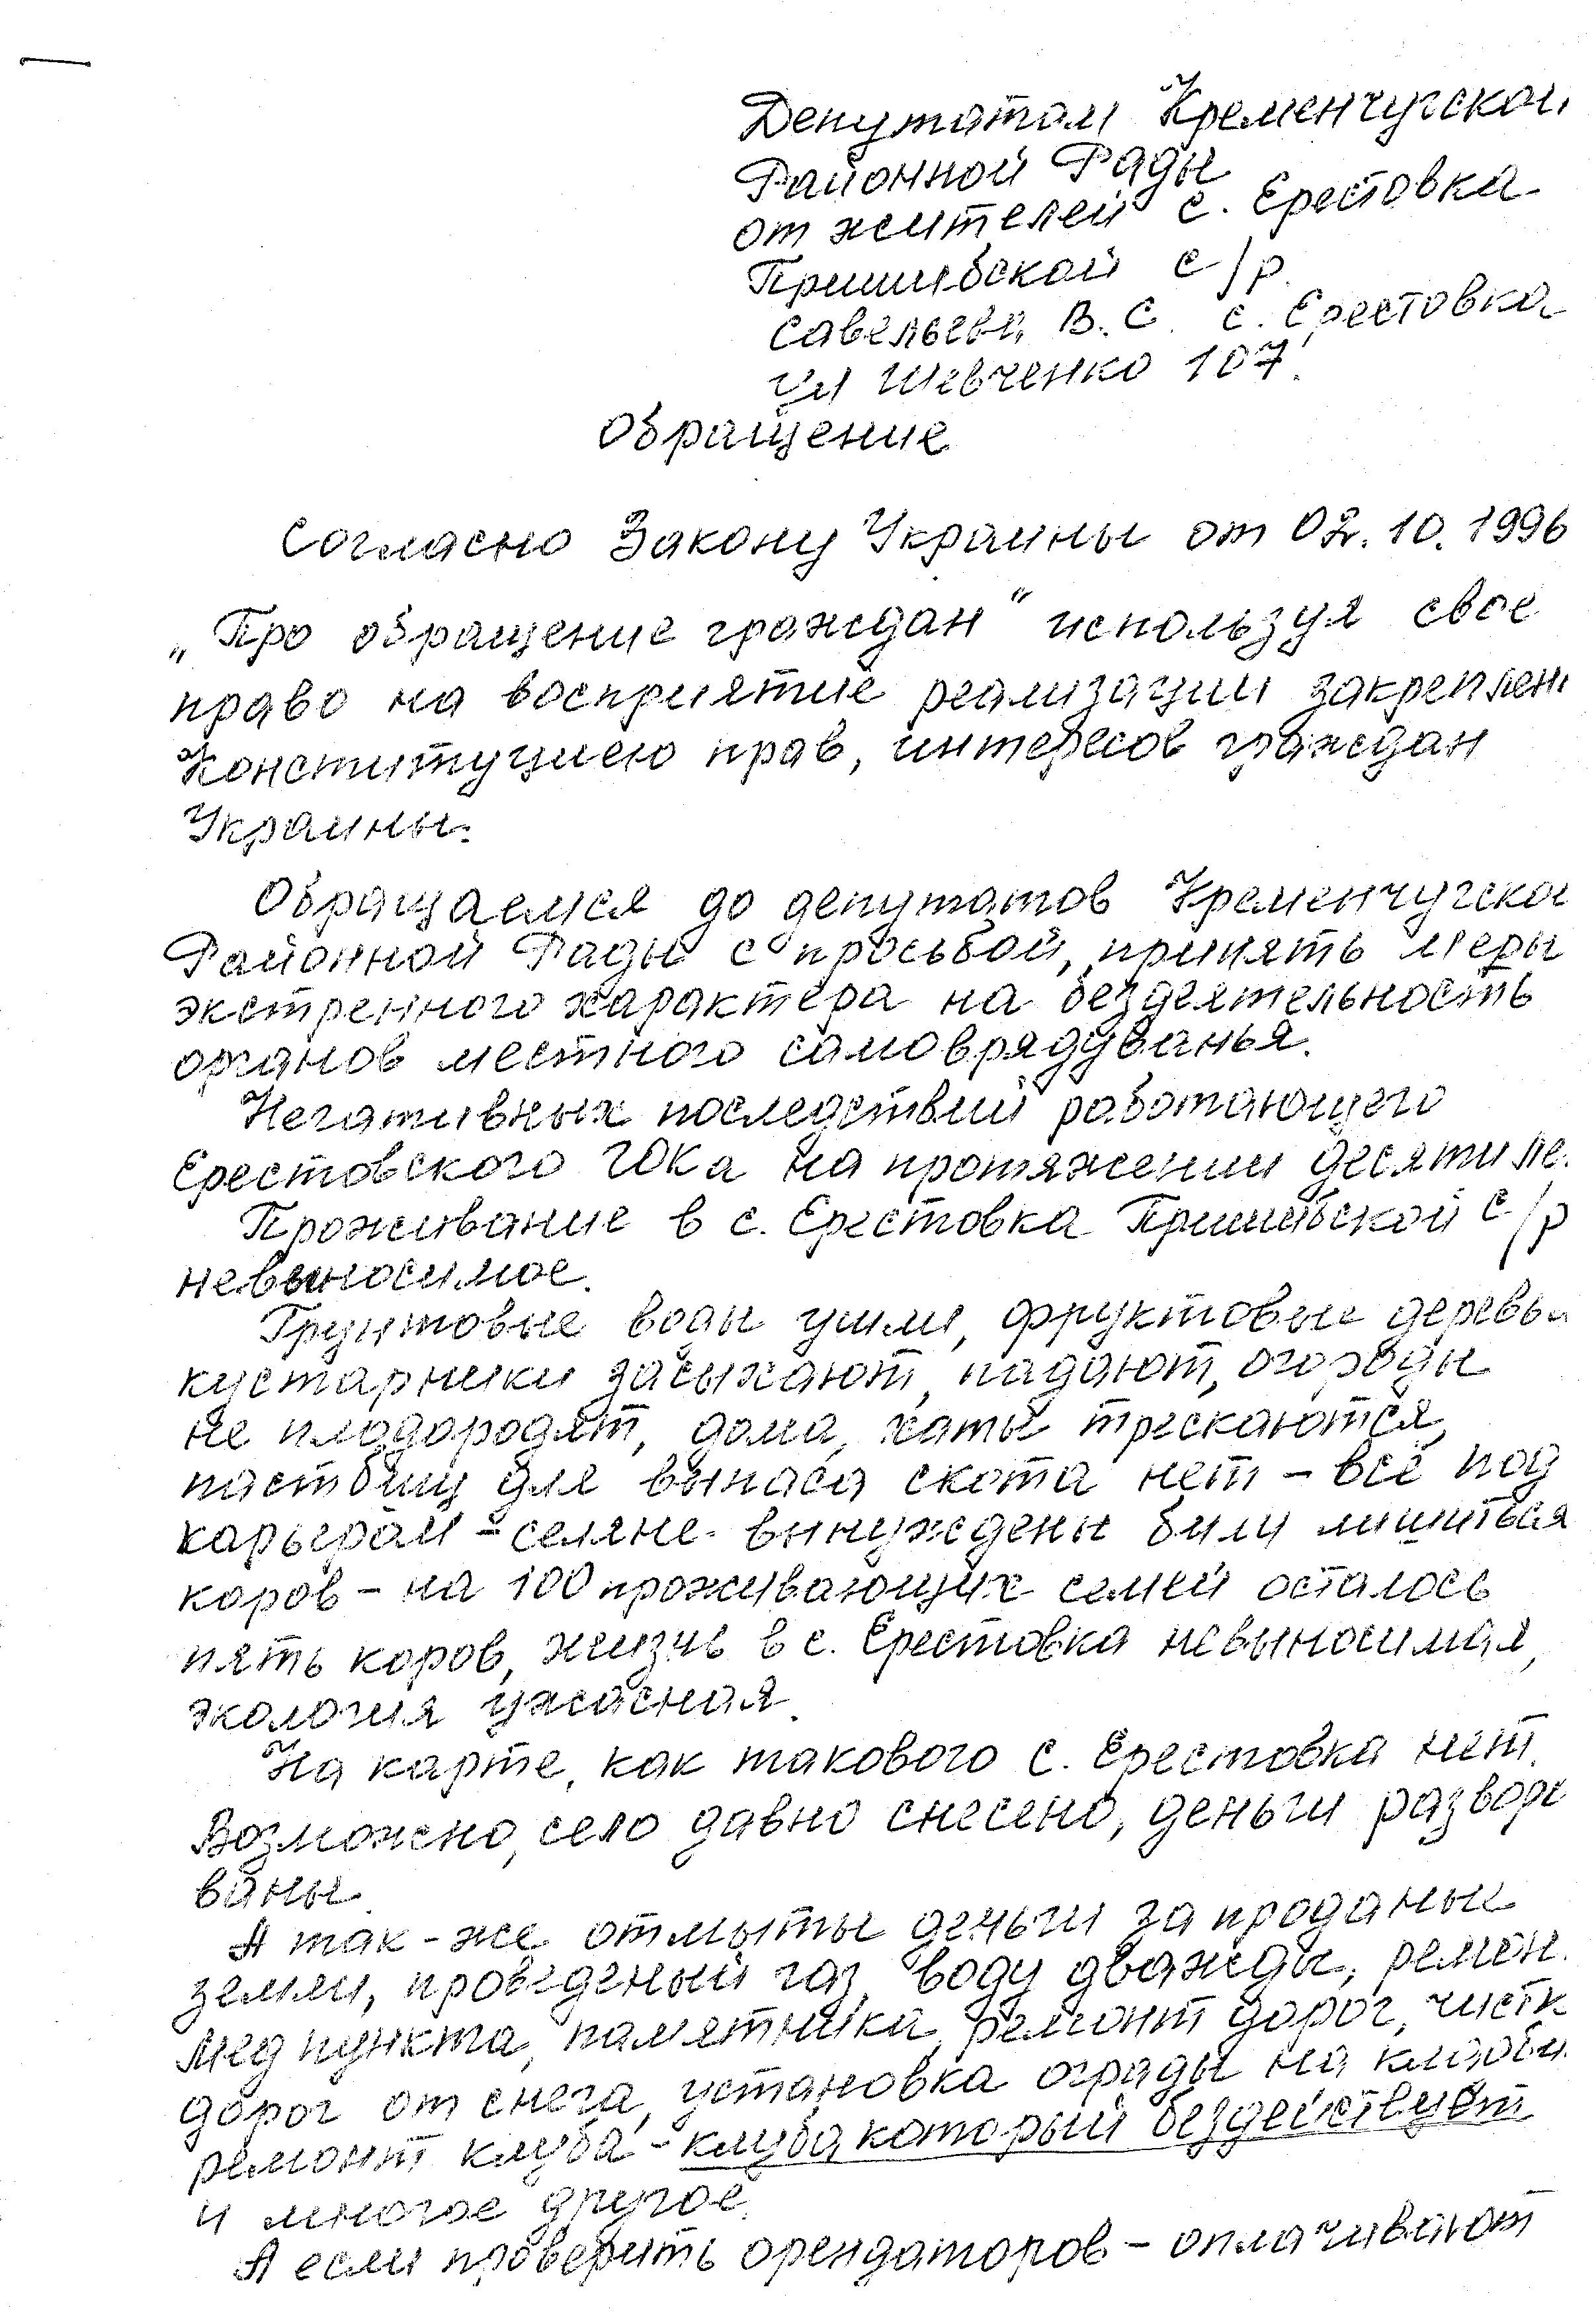 Депутатам Кременчугской
Районной Рады
от жителей с. Ерестовка
Пришибской с/р.
Савельева В. С. с. Ерестовка
ул Шевченко 107.
Обращение
Согласно Закону Украины от 02.10.1996
„Про обращение граждан“ используя свое
право на восприятие реализации закреплен
Конституциею прав, интересов граждан
Украины.
Обращаемся до депутатов Кременчугской
Районной Рады с просьбой, принять меры
экстренного характера на бездеятельность
органов местного самоврядуванья.
Негативных последствий работающего
Ерестовского ГОКа на протяжении десяти ле
Проживание в с. Ерестовка Пришибской с/р
невыносимое.
Грунтовые воды ушли, фруктовые деревья
кустарники засыхают, падают, огороды
не плодородят, дома, хаты трескаются,
пастбищ для выпаса скота нет – всё под
карьером – селяне вынуждены били лишиться
коров – на 100 проживающих семей осталось
пять коров, жизнь в с. Ерестовка невыносимая,
экология ужасная.
На карте, как такового с. Ерестовка нет.
Возможно, село давно снесено, деньги разворо
ваны.
А так-же отмыты деньги за проданые
земли, проведеный газ, воду дважды, ремон
мед пункта, памятника, ремонт дорог, чистк
дорог от снега, установка ограды на кладби
ремонт клуба – клуба который бездействует
и многое другое.
А если проверить орендаторов – оплачивают